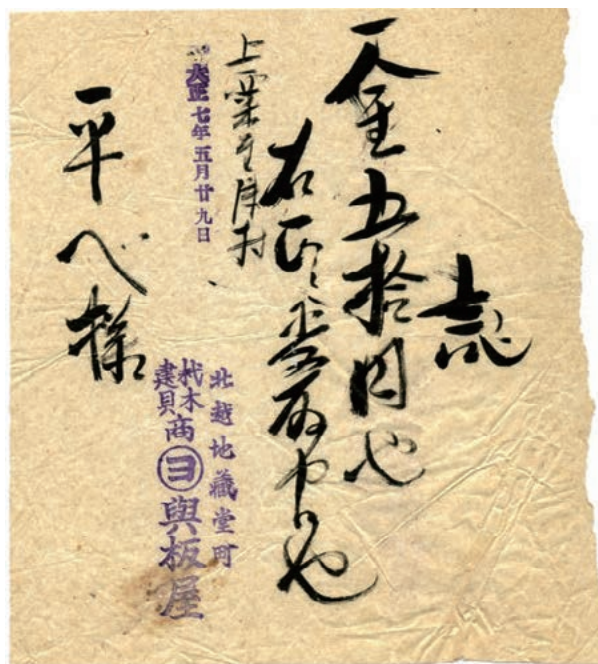 誌
一金五拾円也
右正ニ受取申候也
上粟生津村
大正七年五月廿九日
平 様
北越地藏堂町
材木
建具
商 ヨ 與板屋